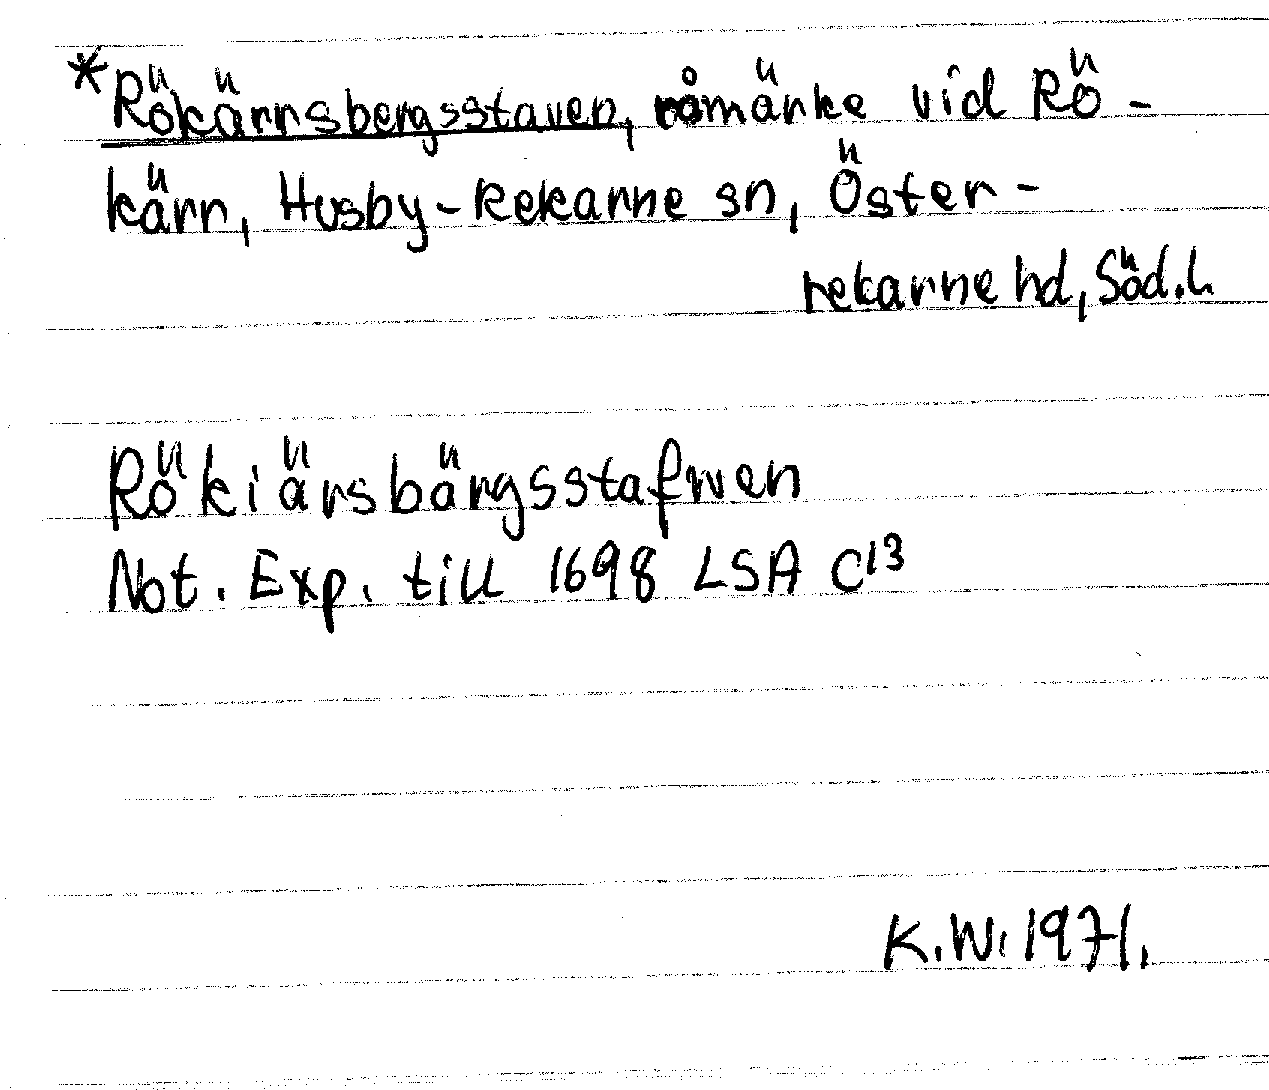 *Rökärnsbergsstaven, råmärke vid Rö-
kärn, Husby-Rekarne sn, Öster-
rekarne hd, Söd.L
Rökiärsbärgsstafwen
Not. Exp. till 1698 LSA C13
K.W. 1971.